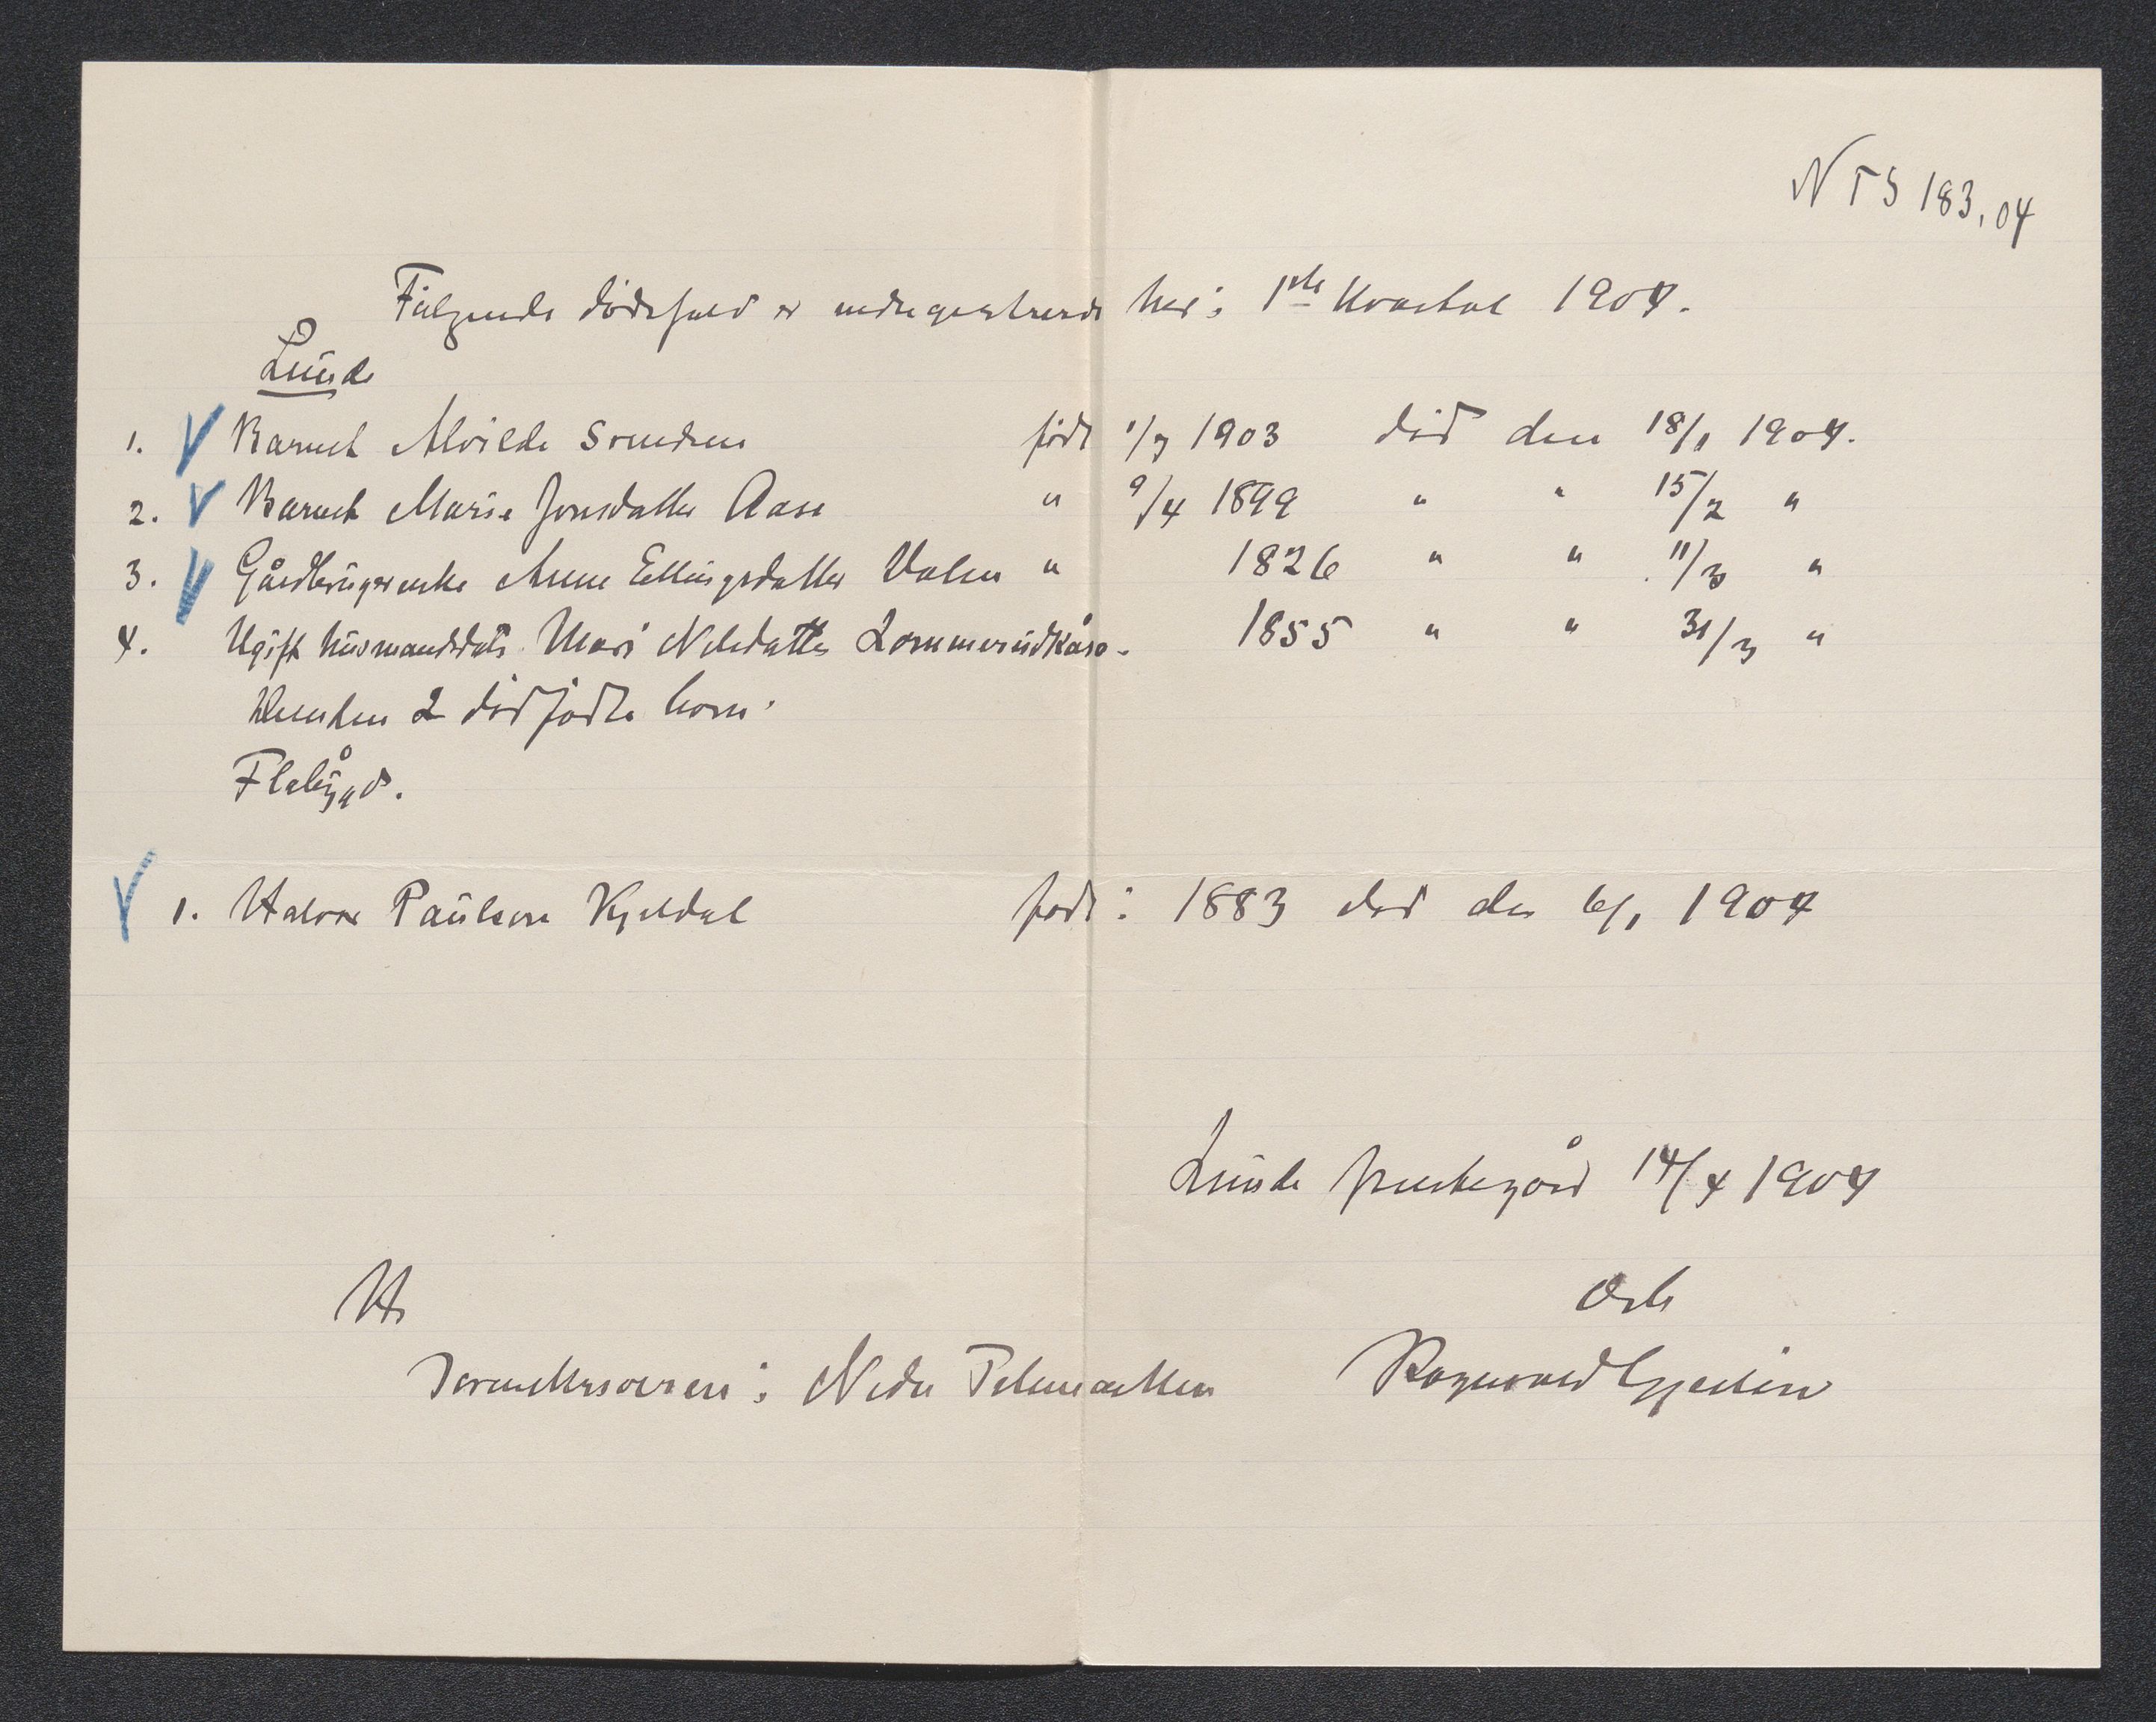 NTS 183,04
Følgende dødsfald er indregistrerede her i 1ste Kvartal 1904.
Lunde
1. Barnet Alvilde Svendsen født 1/7 1903 død den 18/1 1904.
2. Barnet Marie Jonsdatter Aase " 9/4 1899 " " 15/2 "
3. Gårdbrugerenke Anne Ellingsdatter Valen " 1826 " " 11/3 "
4. Ugift husmandsdatr. Mari Nilsdatter Lommerudkåsa - 1855 " " 31/3 "
Desuden 2 dødfødte børn.
Flåbygd.
1. Halvor Paulsen Kjeldal født i 1883 død den 6/1 1904
Lunde prestegård 14/4 1904
Til
Sorenskriveren i Nedre Telemarken
Ragnvald Gjessing